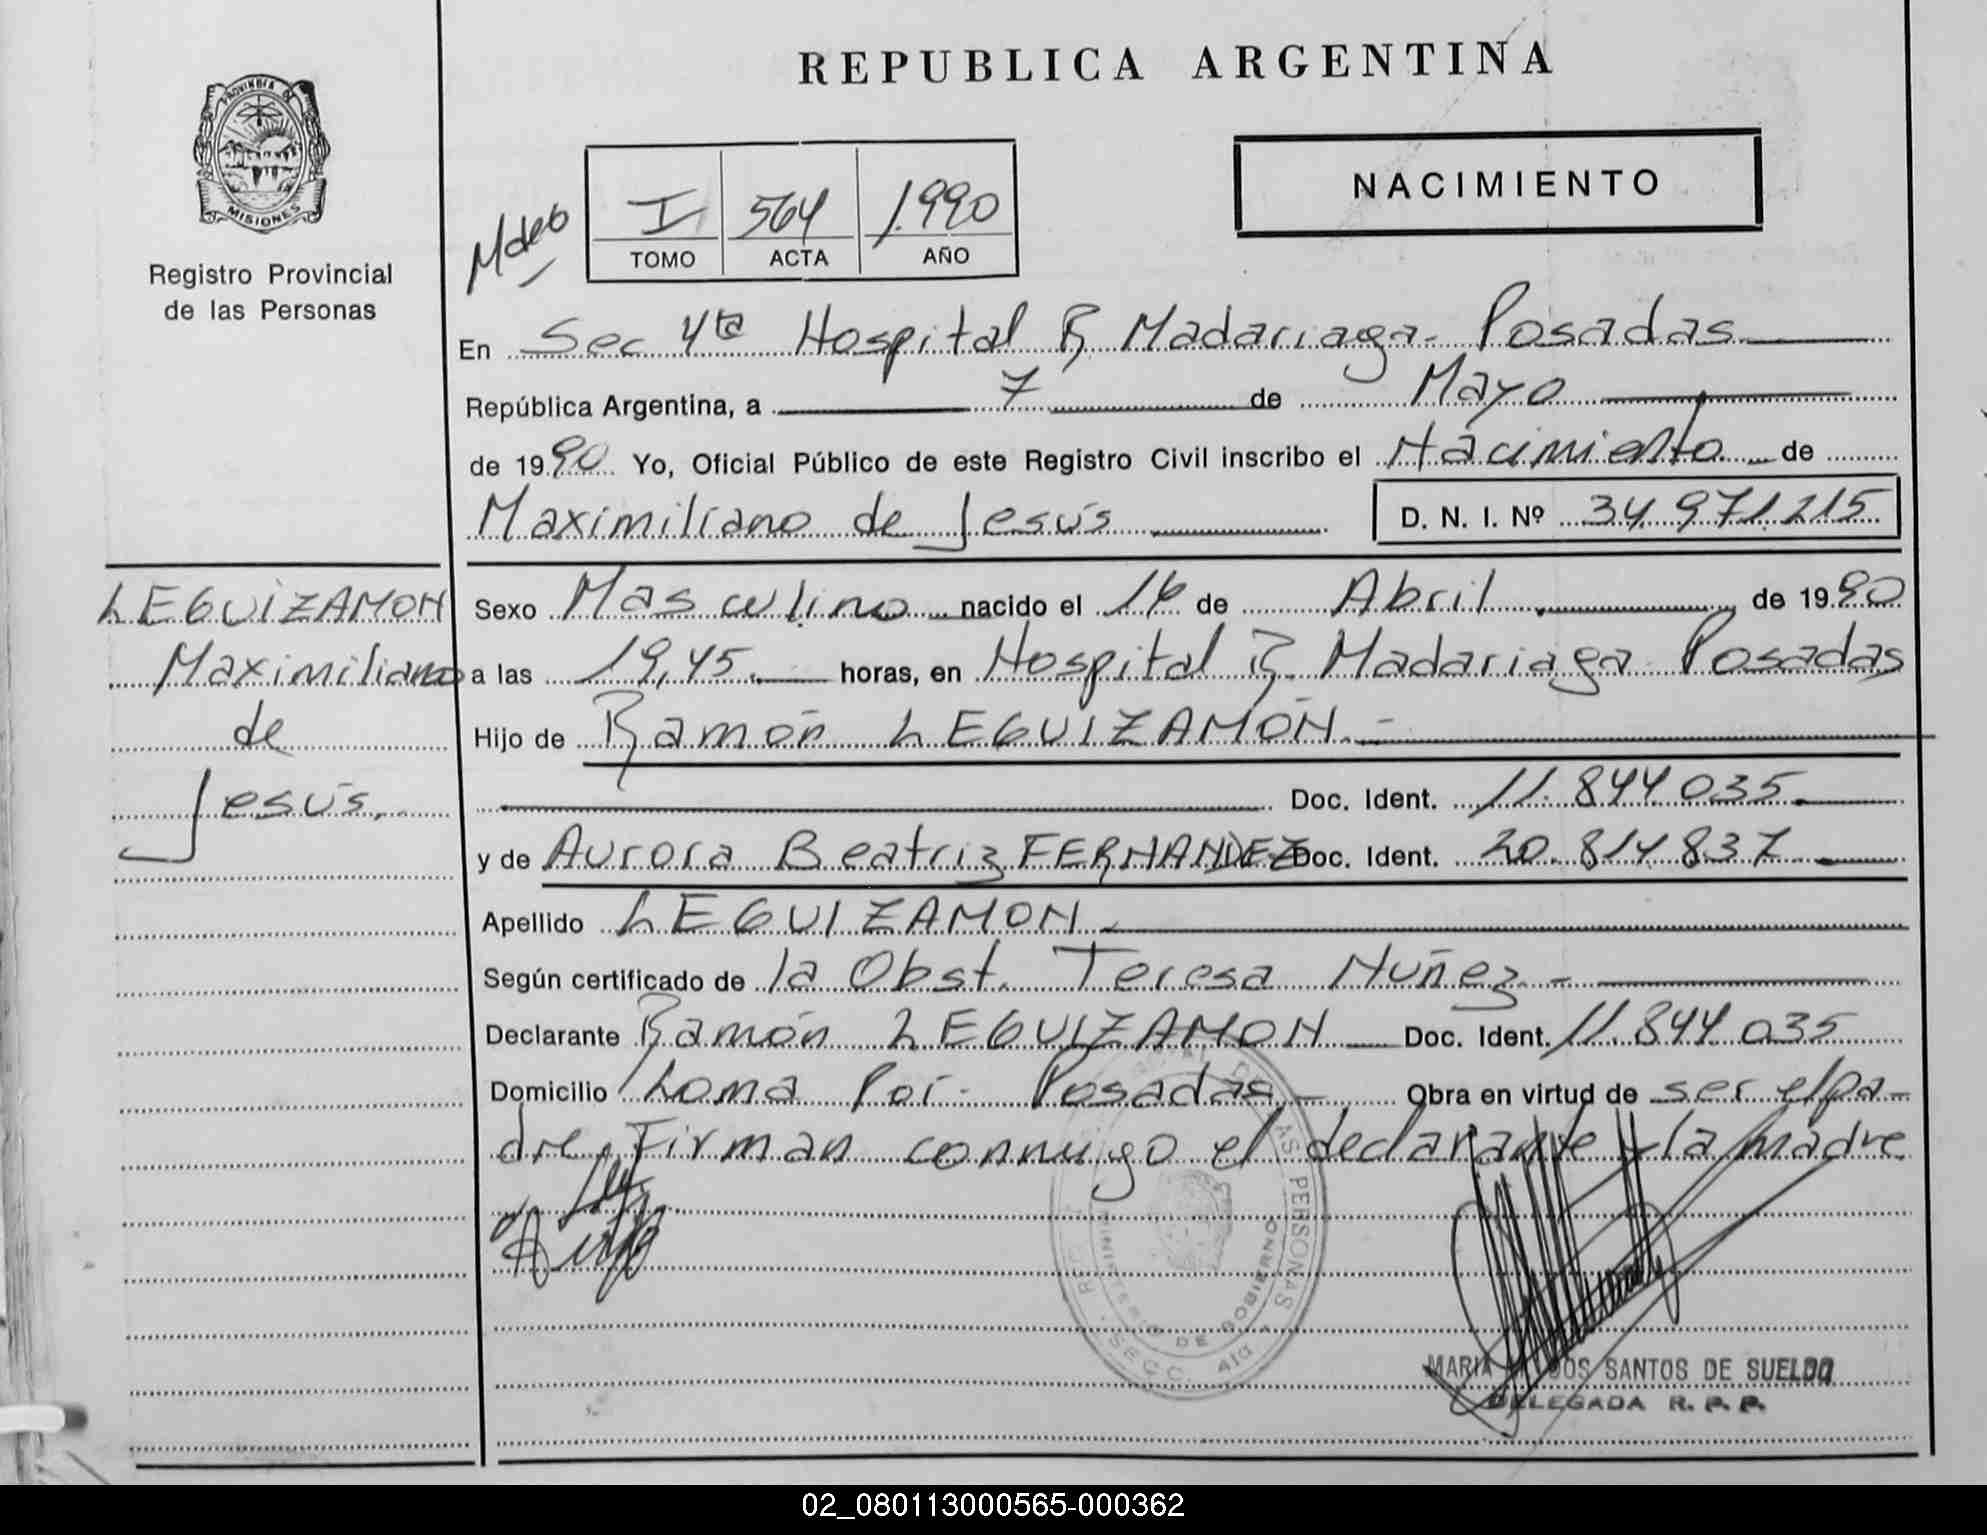 REPUBLICA ARGENTINA
PROVINCIA DE
MISIONES
Registro Provincial
de las Personas
NACIMIENTO
I 564 1.990
TOMO ACTA AÑO
En Sec 4ta Hospital R Madariaga - Posadas
República Argentina, a 7 de Mayo
de 1990 Yo, Oficial Público de este Registro Civil inscribo el Nacimiento de
Maximiliano de Jesús D. N. I. Nº 34.971.215
LEGUIZAMON
Maximiliano
de
Jesús.
Sexo Masculino nacido el 16 de Abril de 1990
a las 19,45 horas, en Hospital R. Madariaga Posadas
Hijo de Ramón LEGUIZAMÓN.-
Doc. Ident. 11.844.035
y de Aurora Beatriz FERNANDEZ Doc. Ident. 20.814.837
Apellido LEGUIZAMON
Según certificado de la Obst. Teresa Nuñez -
Declarante Ramón LEGUIZAMON Doc. Ident. 11.844.035
Domicilio Loma Poi - Posadas - Obra en virtud de ser el pa-
dre, Firman conmigo el declarante y la madre
LAS PERSONAS
MINISTERIO DE GOBIERNO
SECC. 4ta
MARIA DOS SANTOS DE SUELDO
DELEGADA R. P. P.
02_080113000565-000362